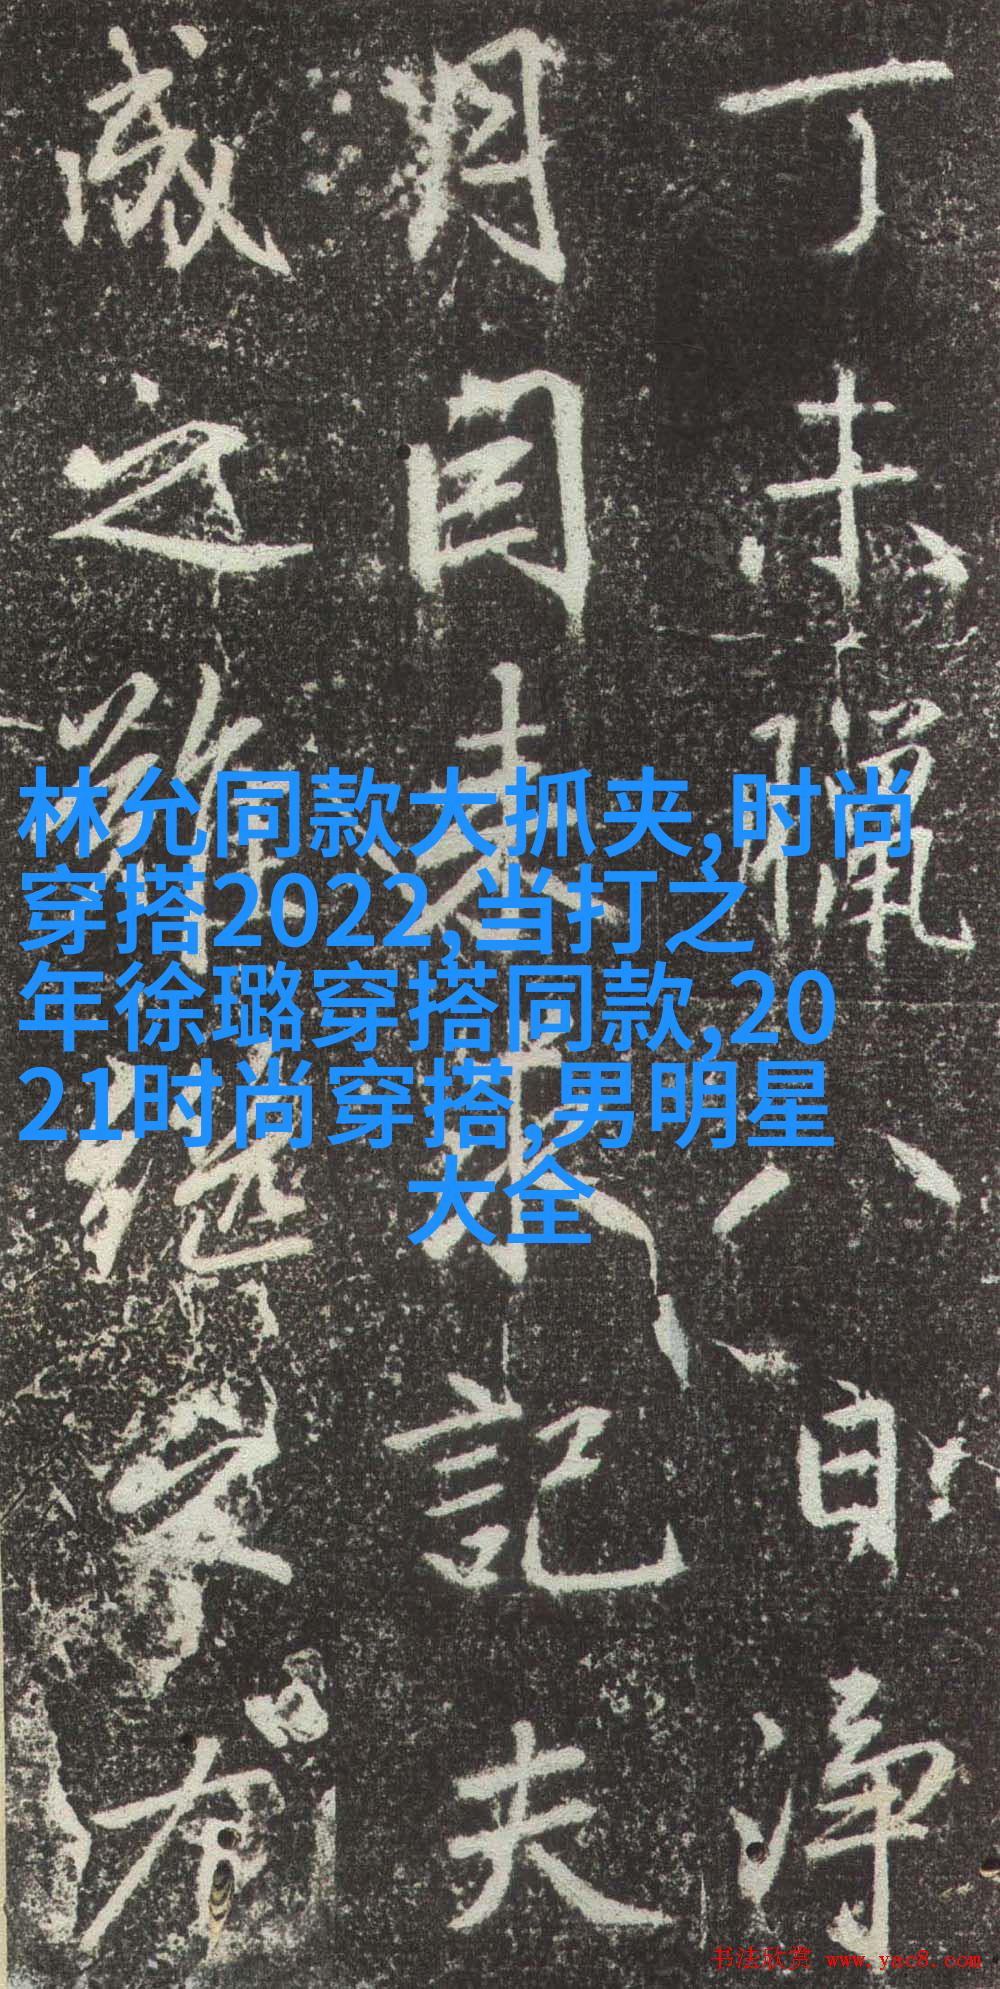 丁未臘八日淨
月目記夫
成之難繼
林允同款大抓夹,时尚
穿搭2022,当打之
年徐璐穿搭同款,20
21时尚穿搭,男明星
大全
书法欣赏 www.yac8.com